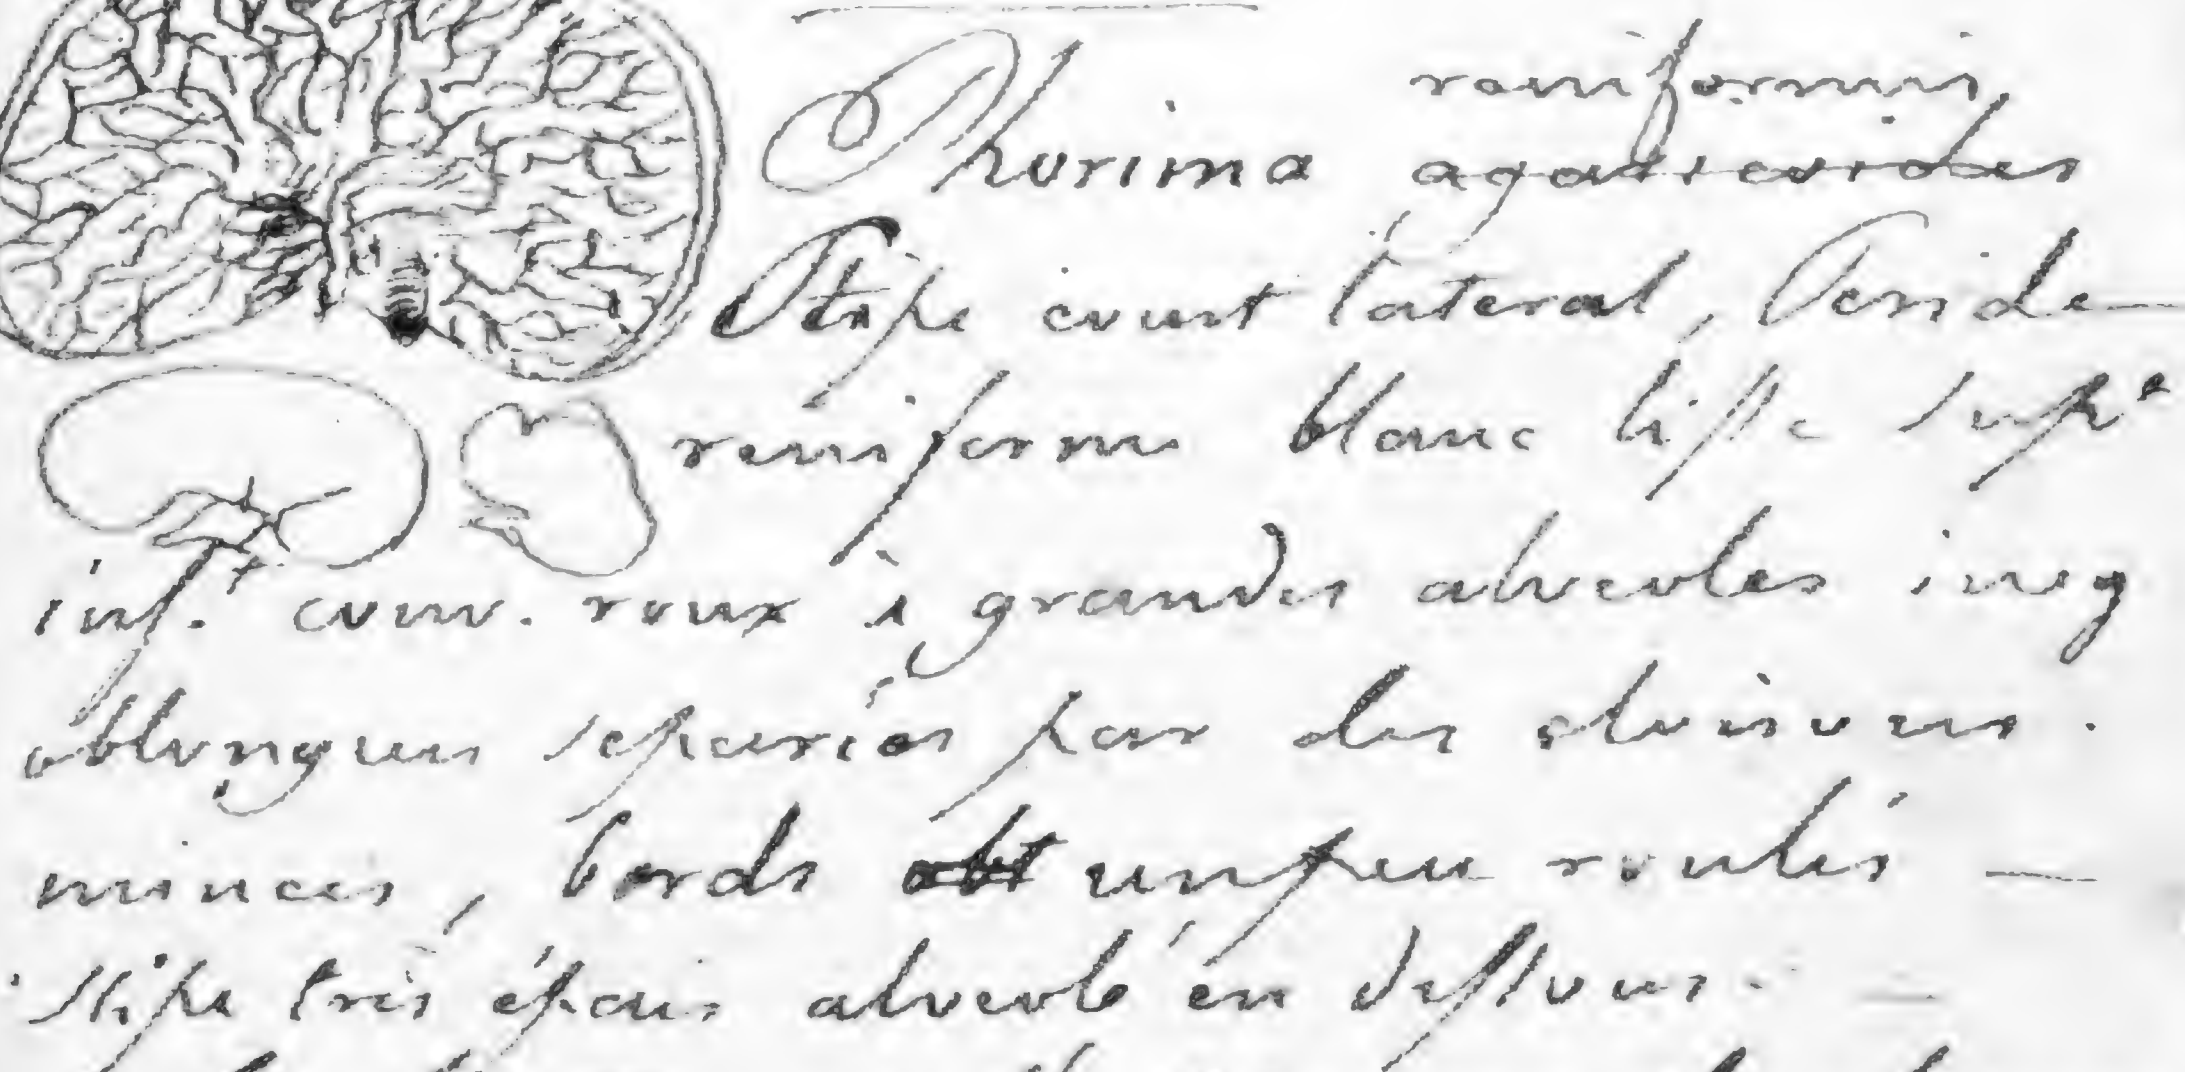 reniformis
Phorima agaricoides
Stipe court lateral, Peride
reniforme blanc lisse supe
inft. conv. roux à grandes alveoles irreg
oblongues separées par des cloisons.
minces, bords un peu roulés —
Stipe très épais alveolé en dessous. —